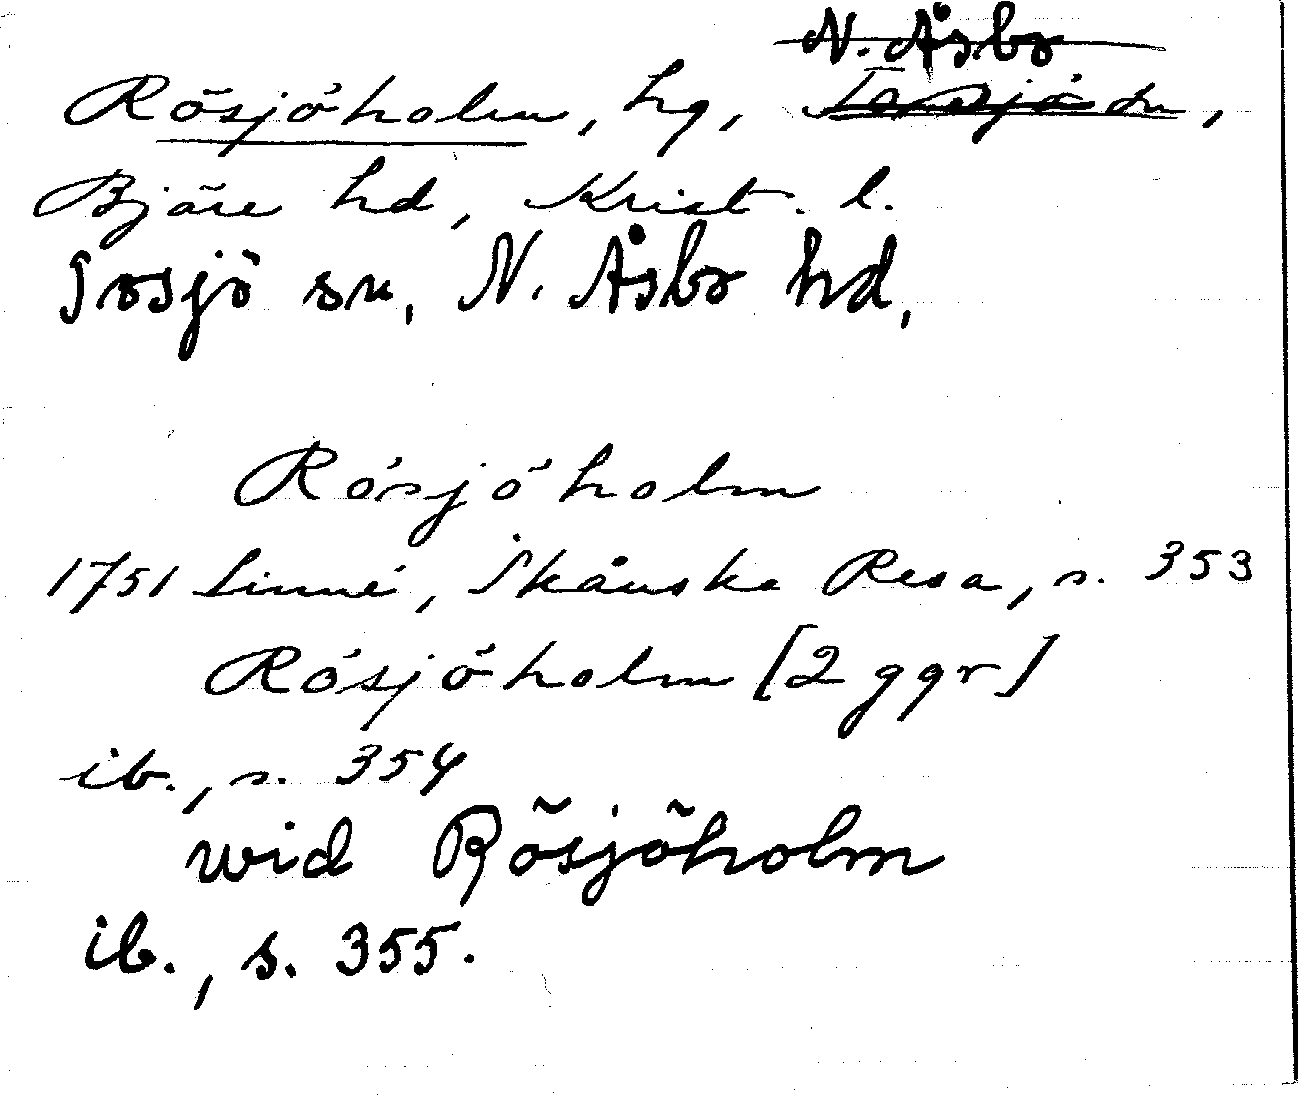 N. Åsbo
Rösjöholm, hg, Tosjö sn,
Bjäre hd, Krist. l.
Tosjö sn, N. Åsbo hd,
Rösjöholm
1751 Linné, Skånska Resa, s. 353
Rösjöholm [2 ggr]
ib., s. 354
wid Rösjöholm
ib., s. 355.